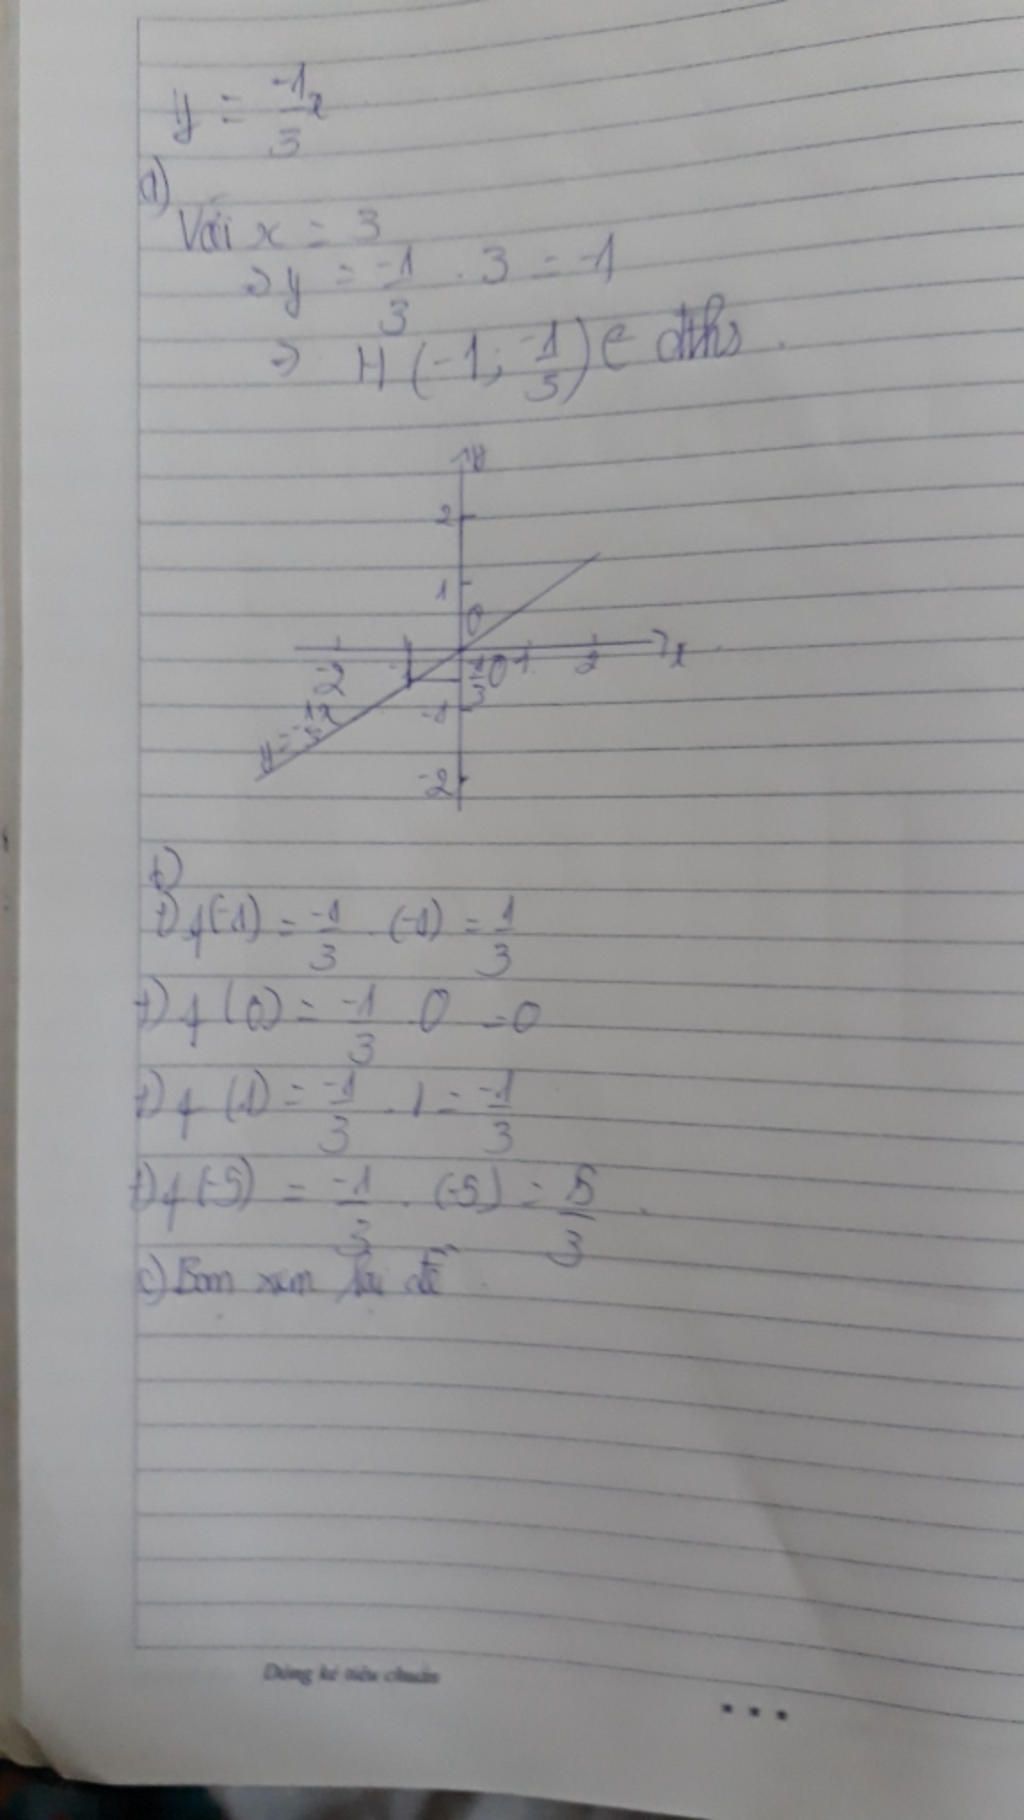 y = -1/3 x
a)
Với x = 3
=> y = -1/3 . 3 = -1
=> H (-1; -1/3) ∈ đths.
y
2
1
0
-2 -1 1/3 0 1 2 x
-1
y = -1/3 x
-2
b)
+) f(-1) = -1/3 . (-1) = 1/3
+) f(0) = -1/3 . 0 = 0
+) f(1) = -1/3 . 1 = -1/3
+) f(-5) = -1/3 . (-5) = 5/3.
c) Bạn xem lại đề.
Dòng kẻ tiêu chuẩn